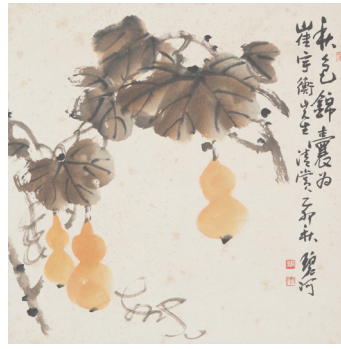 秋色錦囊为
崔宇衡先生清赏乙卯秋碧河